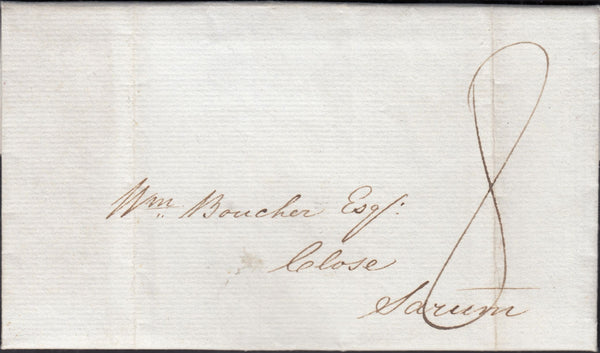 8
Wm. Boucher Esqr.
Close
Sarum